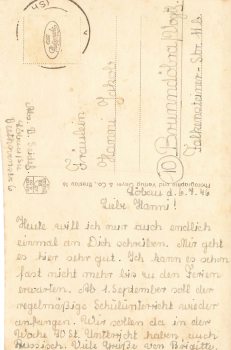 Fräulein
Hanni Jakob
10) Brunndöbra Vogtl.
Falkensteiner-Str. 11 b.
Löbau d. 10.7.46
Liebe Hanni!
Heute will ich nur auch endlich
einmal an Dich schreiben. Mir geht
es hier sehr gut. Ich kann es schon
fast nicht mehr bis zu den Ferien
erwarten. Ab 1. September soll der
regelmäßige Schulunterricht wieder
anfangen. Wir sollen da in der
Woche 30 St. Unterricht haben, auch
Russisch. Viele Grüße von Brigitte.